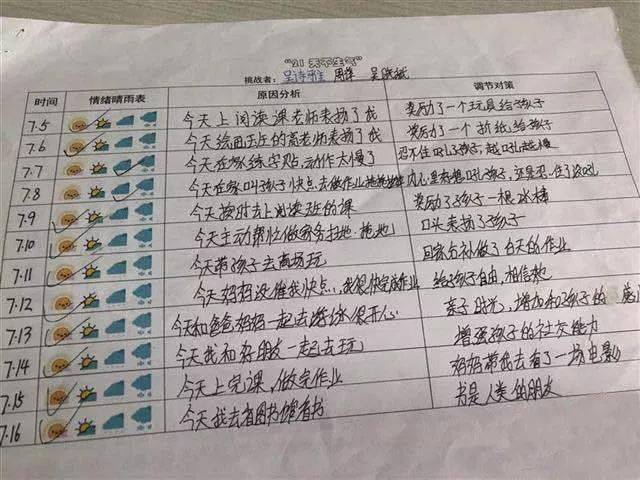 "21天不生气"
挑战者：吴诗雅 周华 吴晓斌
时间 情绪晴雨表 原因分析 调节对策
7.5 今天上阅读课老师表扬了我 奖励了一个玩具给孩子
7.6 今天绘画班的高老师表扬了我 奖励了一个折纸给孩子
7.7 今天在家练字贴，动作太慢了 忍不住吼了孩子，越吼越慢
7.8 今天在家叫孩子快点去做作业 内心是有想吼孩子，还是忍住了没吼
7.9 今天按时去上阅读班的课 奖励了孩子一根冰棒
7.10 今天主动帮忙做家务扫地、拖地 口头表扬了孩子
7.11 今天带孩子去商场玩 回家后补做了白天的作业
7.12 今天妈妈没催我快点，我很快完成作业 给孩子自由，相信她
7.13 今天和爸爸妈妈一起去游泳很开心 亲子时光，增加和孩子的
7.14 今天我和好朋友一起去玩 增强孩子的社交能力
7.15 今天上完课，做完作业 奶奶带我去看了一场电影
7.16 今天我去看图书馆看书 书是人类的朋友